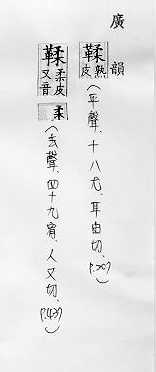 廣韻
鞣熟皮(平聲、十八尤、耳由切、P.207)
鞣柔皮又音柔(去聲、四十九宥、人又切、P.437)